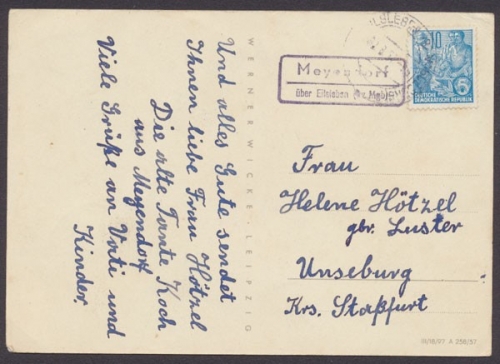 Und alles Gute sendet
Ihnen liebe Frau Hötzel
Die alte Tante Koch
aus Meyendorf
Viele Grüße an Vati und
Kinder.
WERNER WICKE · LEIPZIG
Meyendorf
über Eilsleben (Bz. Mgb)
10
6
DEUTSCHE
DEMOKRATISCHE REPUBLIK
Frau
Helene Hötzel
gbr. Luster
Unseburg
Krs. Staßfurt
III/18/97 A 256/57